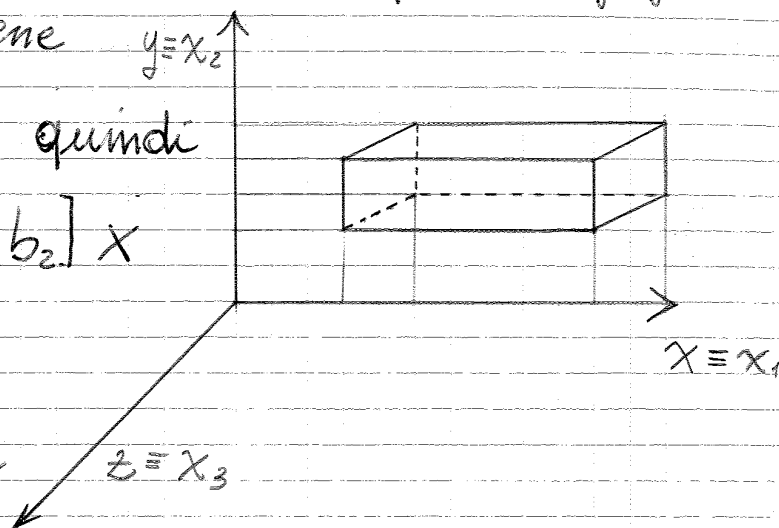 ene
y≡x₂
quindi
b₂] x
x ≡ x₁
z ≡ x₃